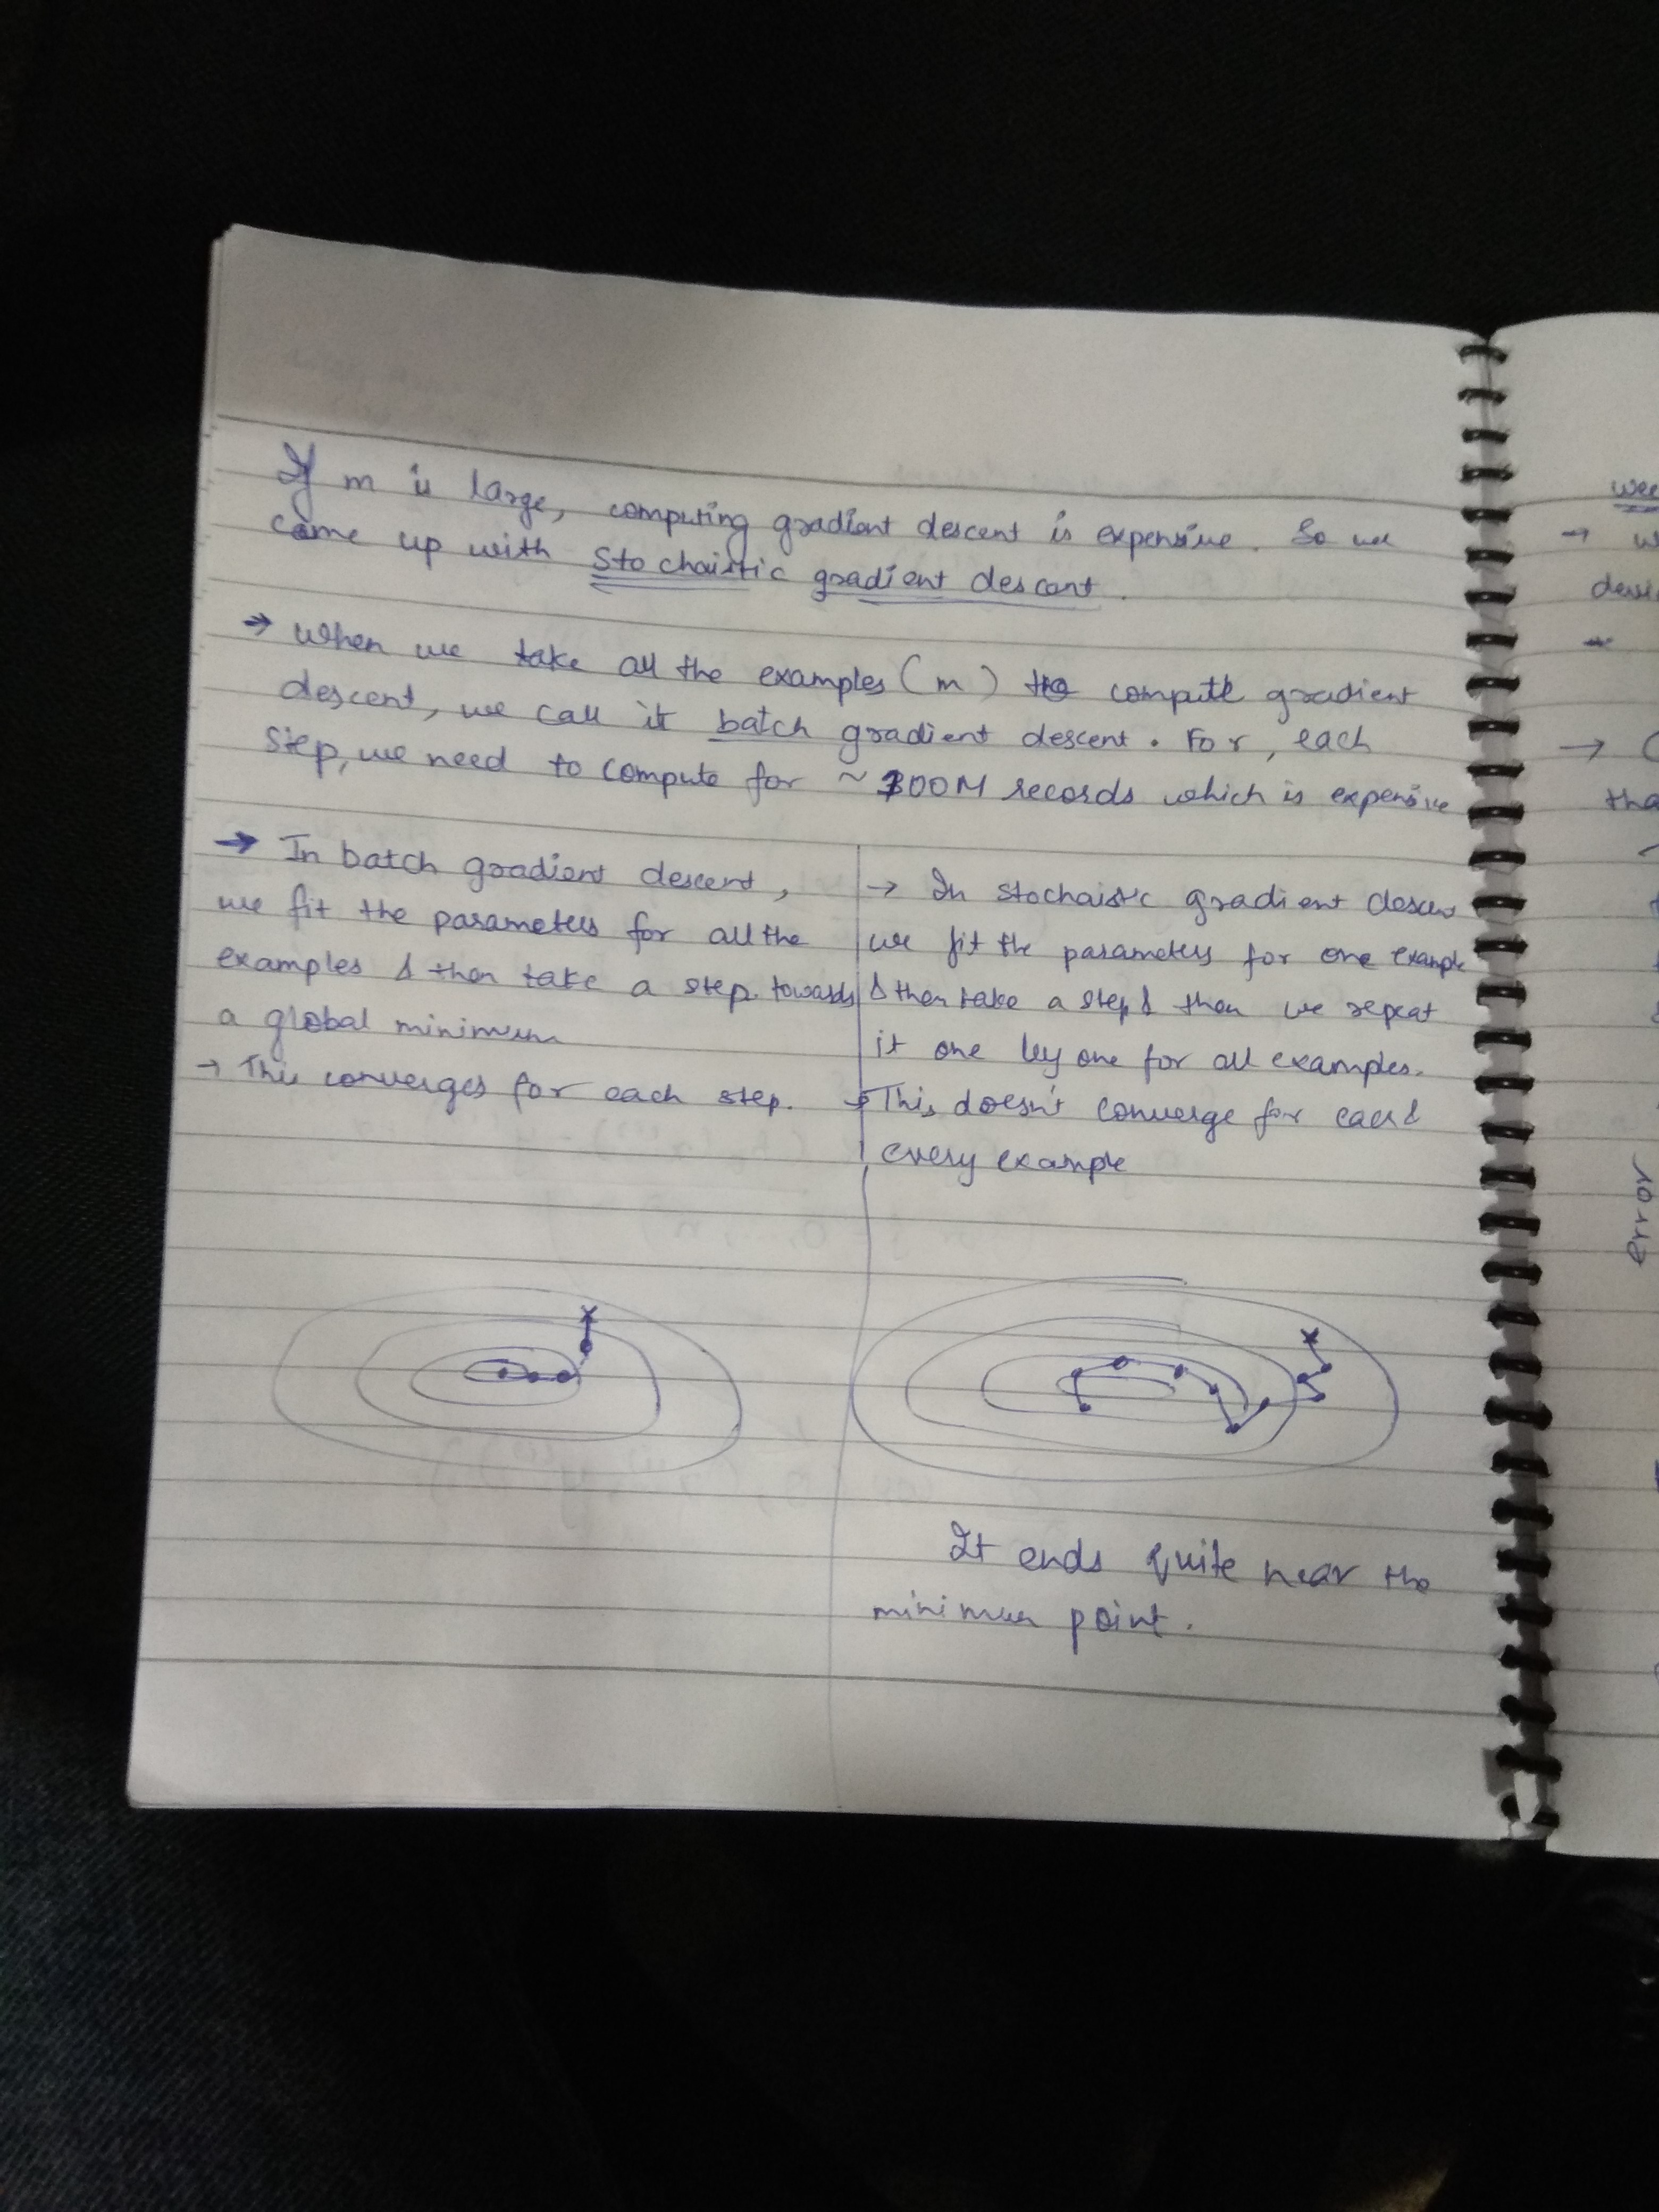 If m is large, computing gradient descent is expensive. So we
came up with Stochaistic gradient descent.
→ When we take all the examples (m) to compute gradient
descent, we call it batch gradient descent. For, each
step, we need to compute for ~ 300M records which is expensive
→ In batch gradient descent,
we fit the parameters for all the
examples & then take a step towards
a global minimum
→ This converges for each step.
→ In stochaistic gradient descen
we fit the parameters for one example
& then take a step & then we repeat
it one by one for all examples.
→ This doesn't converge for each &
every example
It ends quite near the
minimum point.
error